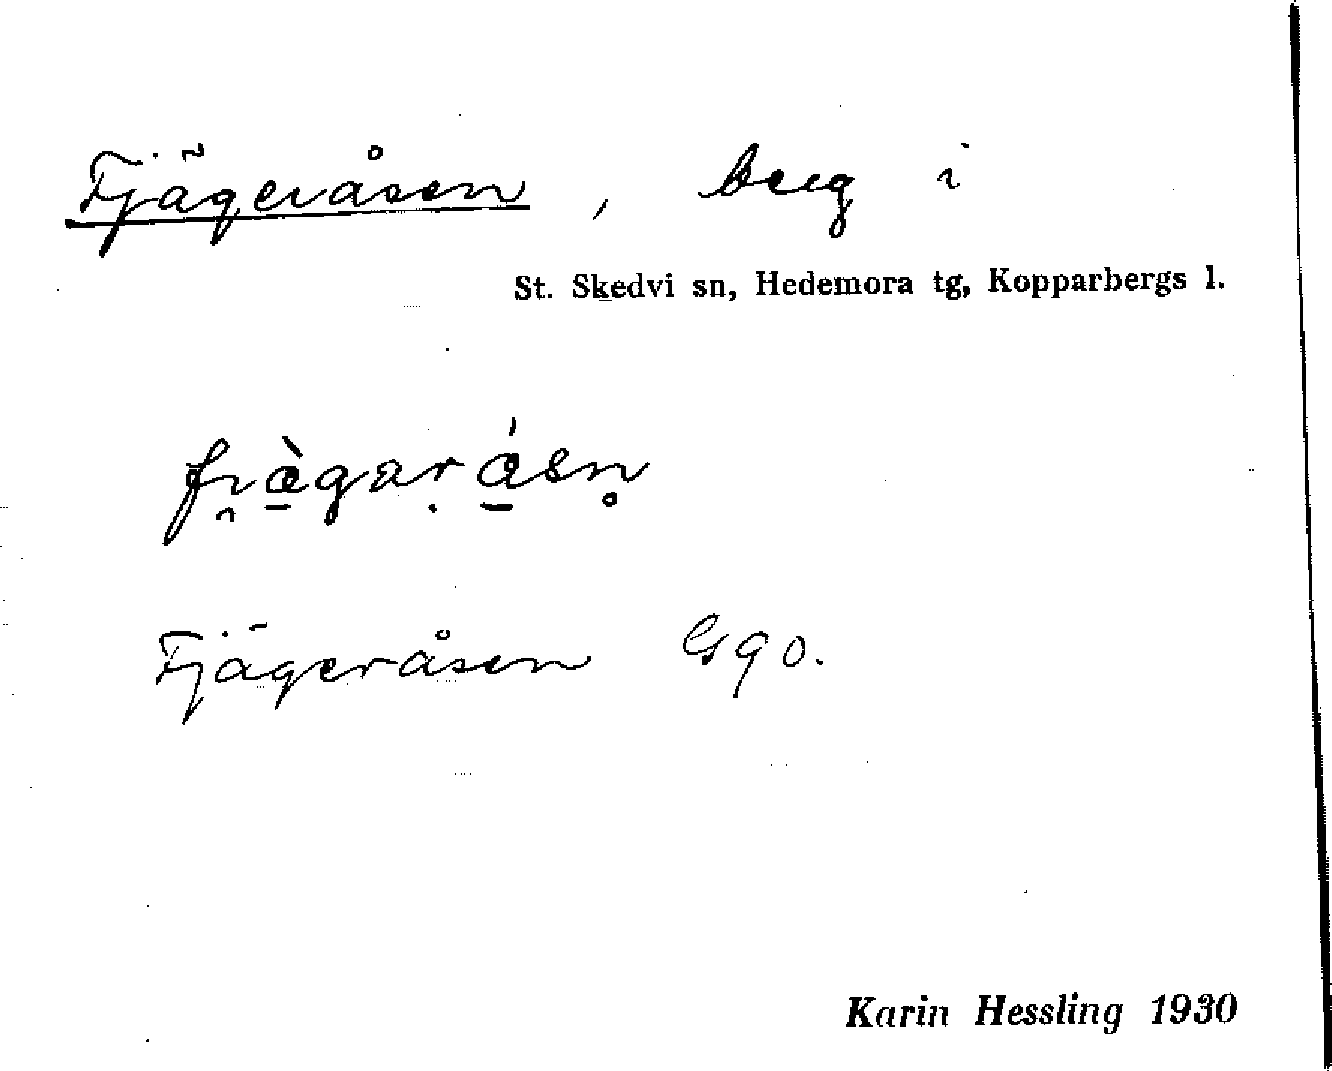 Fjägeråsen, berg i
St. Skedvi sn, Hedemora tg, Kopparbergs l.
Fjägeråsen Ggo.
Karin Hessling 1930